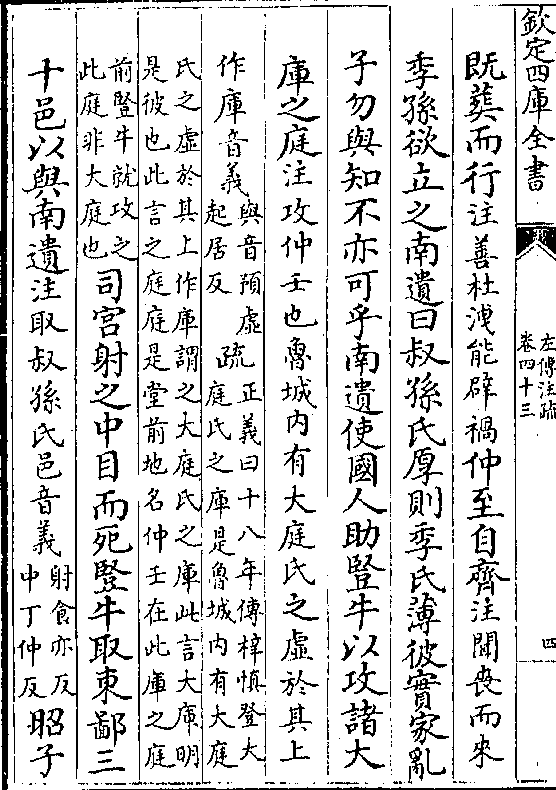 欽定四庫全書
左傳注疏
卷四十三
四
既葬而行注善杜洩能辟禍仲至自齊注聞喪而來
季孫欲立之南遺曰叔孫氏厚則季氏薄彼實家亂
子勿與知不亦可乎南遺使國人助豎牛以攻諸大
庫之庭注攻仲壬也魯城内有大庭氏之虛於其上
作庫音義與音預虛起居反疏正義曰十八年傳梓慎登大庭氏之庫是魯城内有大庭
氏之虛於其上作庫謂之大庭氏之庫此言大庫明是彼也此言之庭庭是堂前地名仲壬在此庫之庭
前豎牛就攻之此庭非大庭也司宮射之中目而死豎牛取東鄙三
十邑以與南遺注取叔孫氏邑音義射食亦反中丁仲反昭子